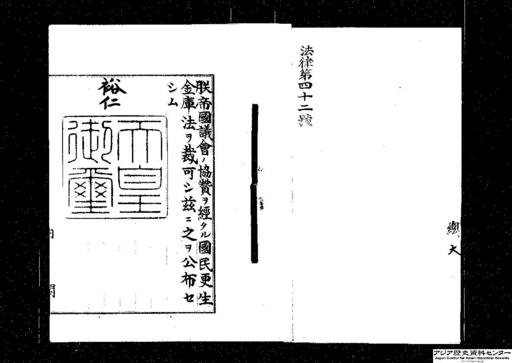 法律第四十二號
朕帝國議會ノ協賛ヲ經タル國民更生
金庫法ヲ裁可シ茲ニ之ヲ公布セ
シム
裕仁
天皇御璽
内閣
アジア歴史資料センター
Japan Center for Asian Historical Records